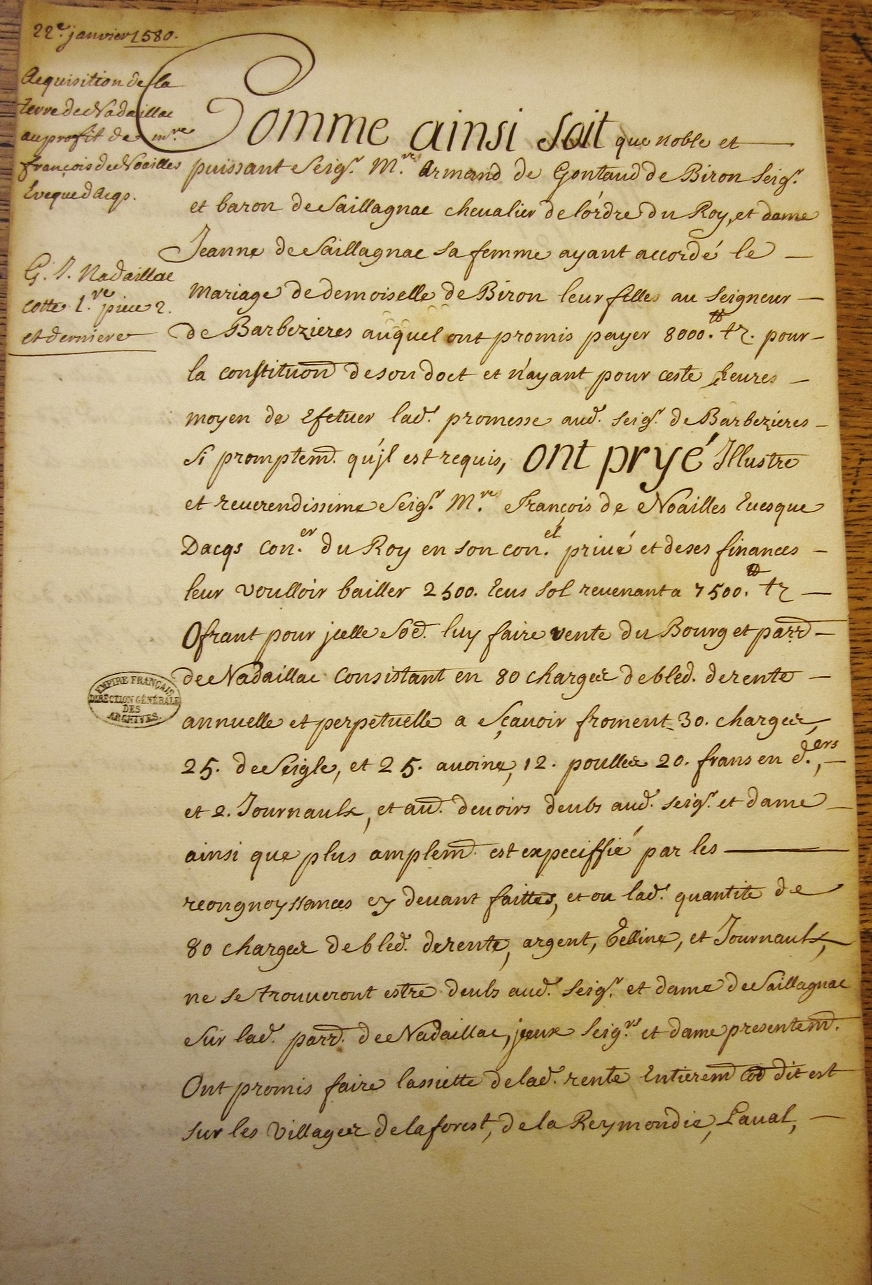 22e. janvier 1580.
Acquisition de la
terre de Nadaillac
au profit de mre
françois de Noailles
Eveque d'acqs.
G. I. Nadaillac
cotte 1.re piece 2.
et derniere
Comme ainsi soit que noble et
puissant Seigr. Mre. Armand de Gontaud de Biron Seigr.
et baron de Saillagnac chevalier de l'órdre du Roy, et dame
Jeanne de Saillagnac sa femme ayant accordé le
Mariage de demoiselle de Biron leur filles au Seigneur
de Barbezieres auquel ont promis payer 8000.tt tz. pour
la constituon de son doct et n'ayant pour ceste heures
moyen de Efetuer lad. promesse aud. Seigr. de Barbezieres
Si promptemt. qu'jl est requis, ont pryé Illustre
et reverendissime Seigr. Mre. François de Noailles Evesque
Dacqs con.er du Roy en son con.el privé et de ses finances
leur voulloir bailler 2500. Ecus sol revenant a 7500.tt tz
Ofrant pour jcelle Soe. luy faire vente du Bourg et parr.
de Nadaillac Consistant en 80 charges de bled. de rente
annuelle et perpetuelle a Sçavoir froment 30. charges,
25. de Seigle, et 25. avoine, 12. poulles 20. frans en d.ers,
et 2. Journaulx, et au. devoirs deubs aud. seigr. et dame
ainsi que plus amplemt. est expeciffié par les
recongnoyssances cy devant faittes, et ou lad. quantité de
80 charges de bled. de rente, argent, Gelline, et Journaulx,
ne se trouveront estre deubs aud. Seigr. et dame de Saillagnac
Sur lad. parr. de Nadaillac, jceux Seigrs et dame presentemt.
Ont promis faire lassiette de lad. rente Entieremt dit est
sur les villages de laforest, de la Reymondie, Laval,
EMPIRE FRANÇAIS
DIRECTION GÉNÉRALE
DES
ARCHIVES.